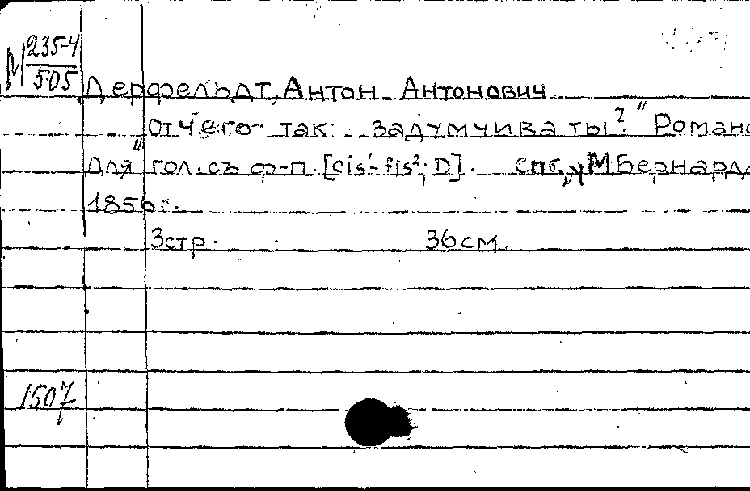 М 235-4
505
Дерфельдт, Антон Антонович
"Отчего так задумчива ты?" Романс
для гол. съ ф-п. [cis¹-fis²; D]. Спб., у М Бернард
1856г.
3стр. 36см.
1507